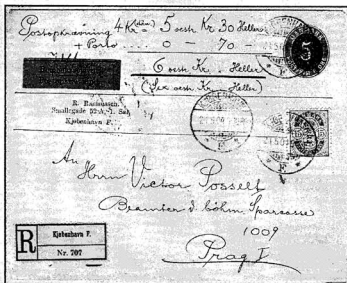 Postopkrævning 4 Kr (dän.) 5 oestr. Kr 30 Heller
+ Porto ... 0 - 70 -
6 oestr. Kr. . Heller
(Sex oestr. Kr. Heller)
R. Basbusch.
Smallegade 52 A, 1. Sal,
Kjøbenhavn F.
5
21.5.09
F
An
Herrn Victor Posselt
Beamter d. böhm. Sparcasse
1009
Prag I
R
Kjøbenhavn F.
Nr. 707